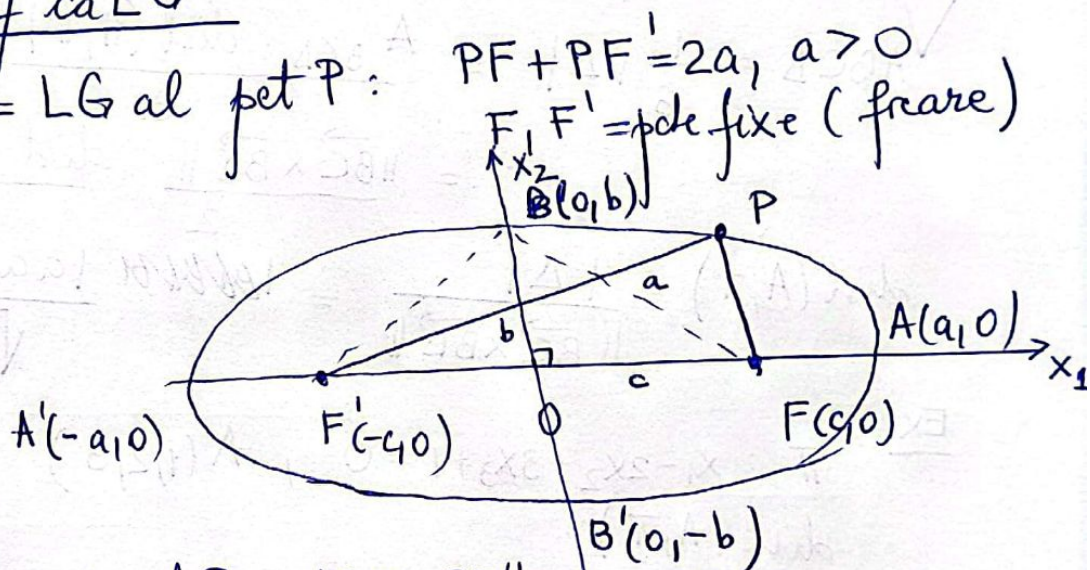 ca LG
= LG al pct P: PF + PF' = 2a, a > 0
F, F' = pcte fixe (focare)
x₂
B(0,b)
P
a
b
A(a,0)
c
x₁
A'(-a,0)
F'(-c,0)
O
F(c,0)
B'(0,-b)